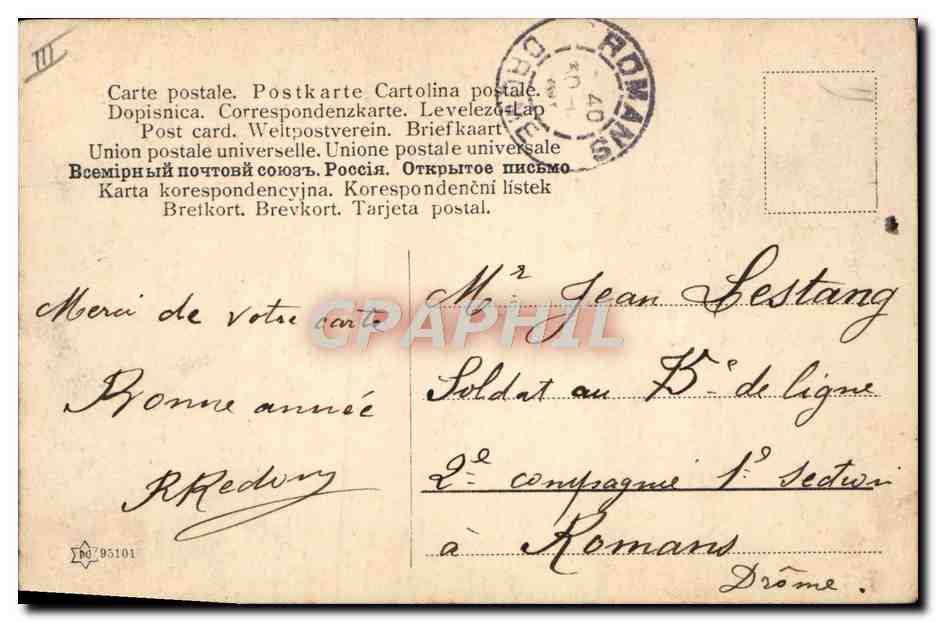 III
Carte postale. Postkarte Cartolina postale.
Dopisnica. Correspondenzkarte. Levelező-Lap
Post card. Weltpostverein. Briefkaart
Union postale universelle. Unione postale universale
Всемірный почтовй союзъ. Россія. Открытое письмо
Karta korespondencyjna. Korespondenční lístek
Bretkort. Brevkort. Tarjeta postal.
ROMANS
DROME
40
Merci de votre carte
Bonne année
RRedon
Mr Jean Lestang
Soldat au 75e de ligne
2e compagnie 1e section
à Romans
Drôme.
CPAPHIL
95101